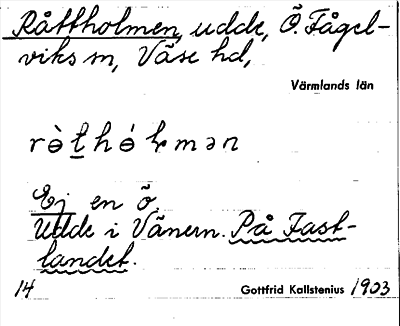 Råttholmen, udde, Ö. Fågel-
viks sn, Väse hd,
Värmlands län
Ej en ö.
Udde i Vänern. På Fast-
landet.
14 Gottfrid Kallstenius 1903